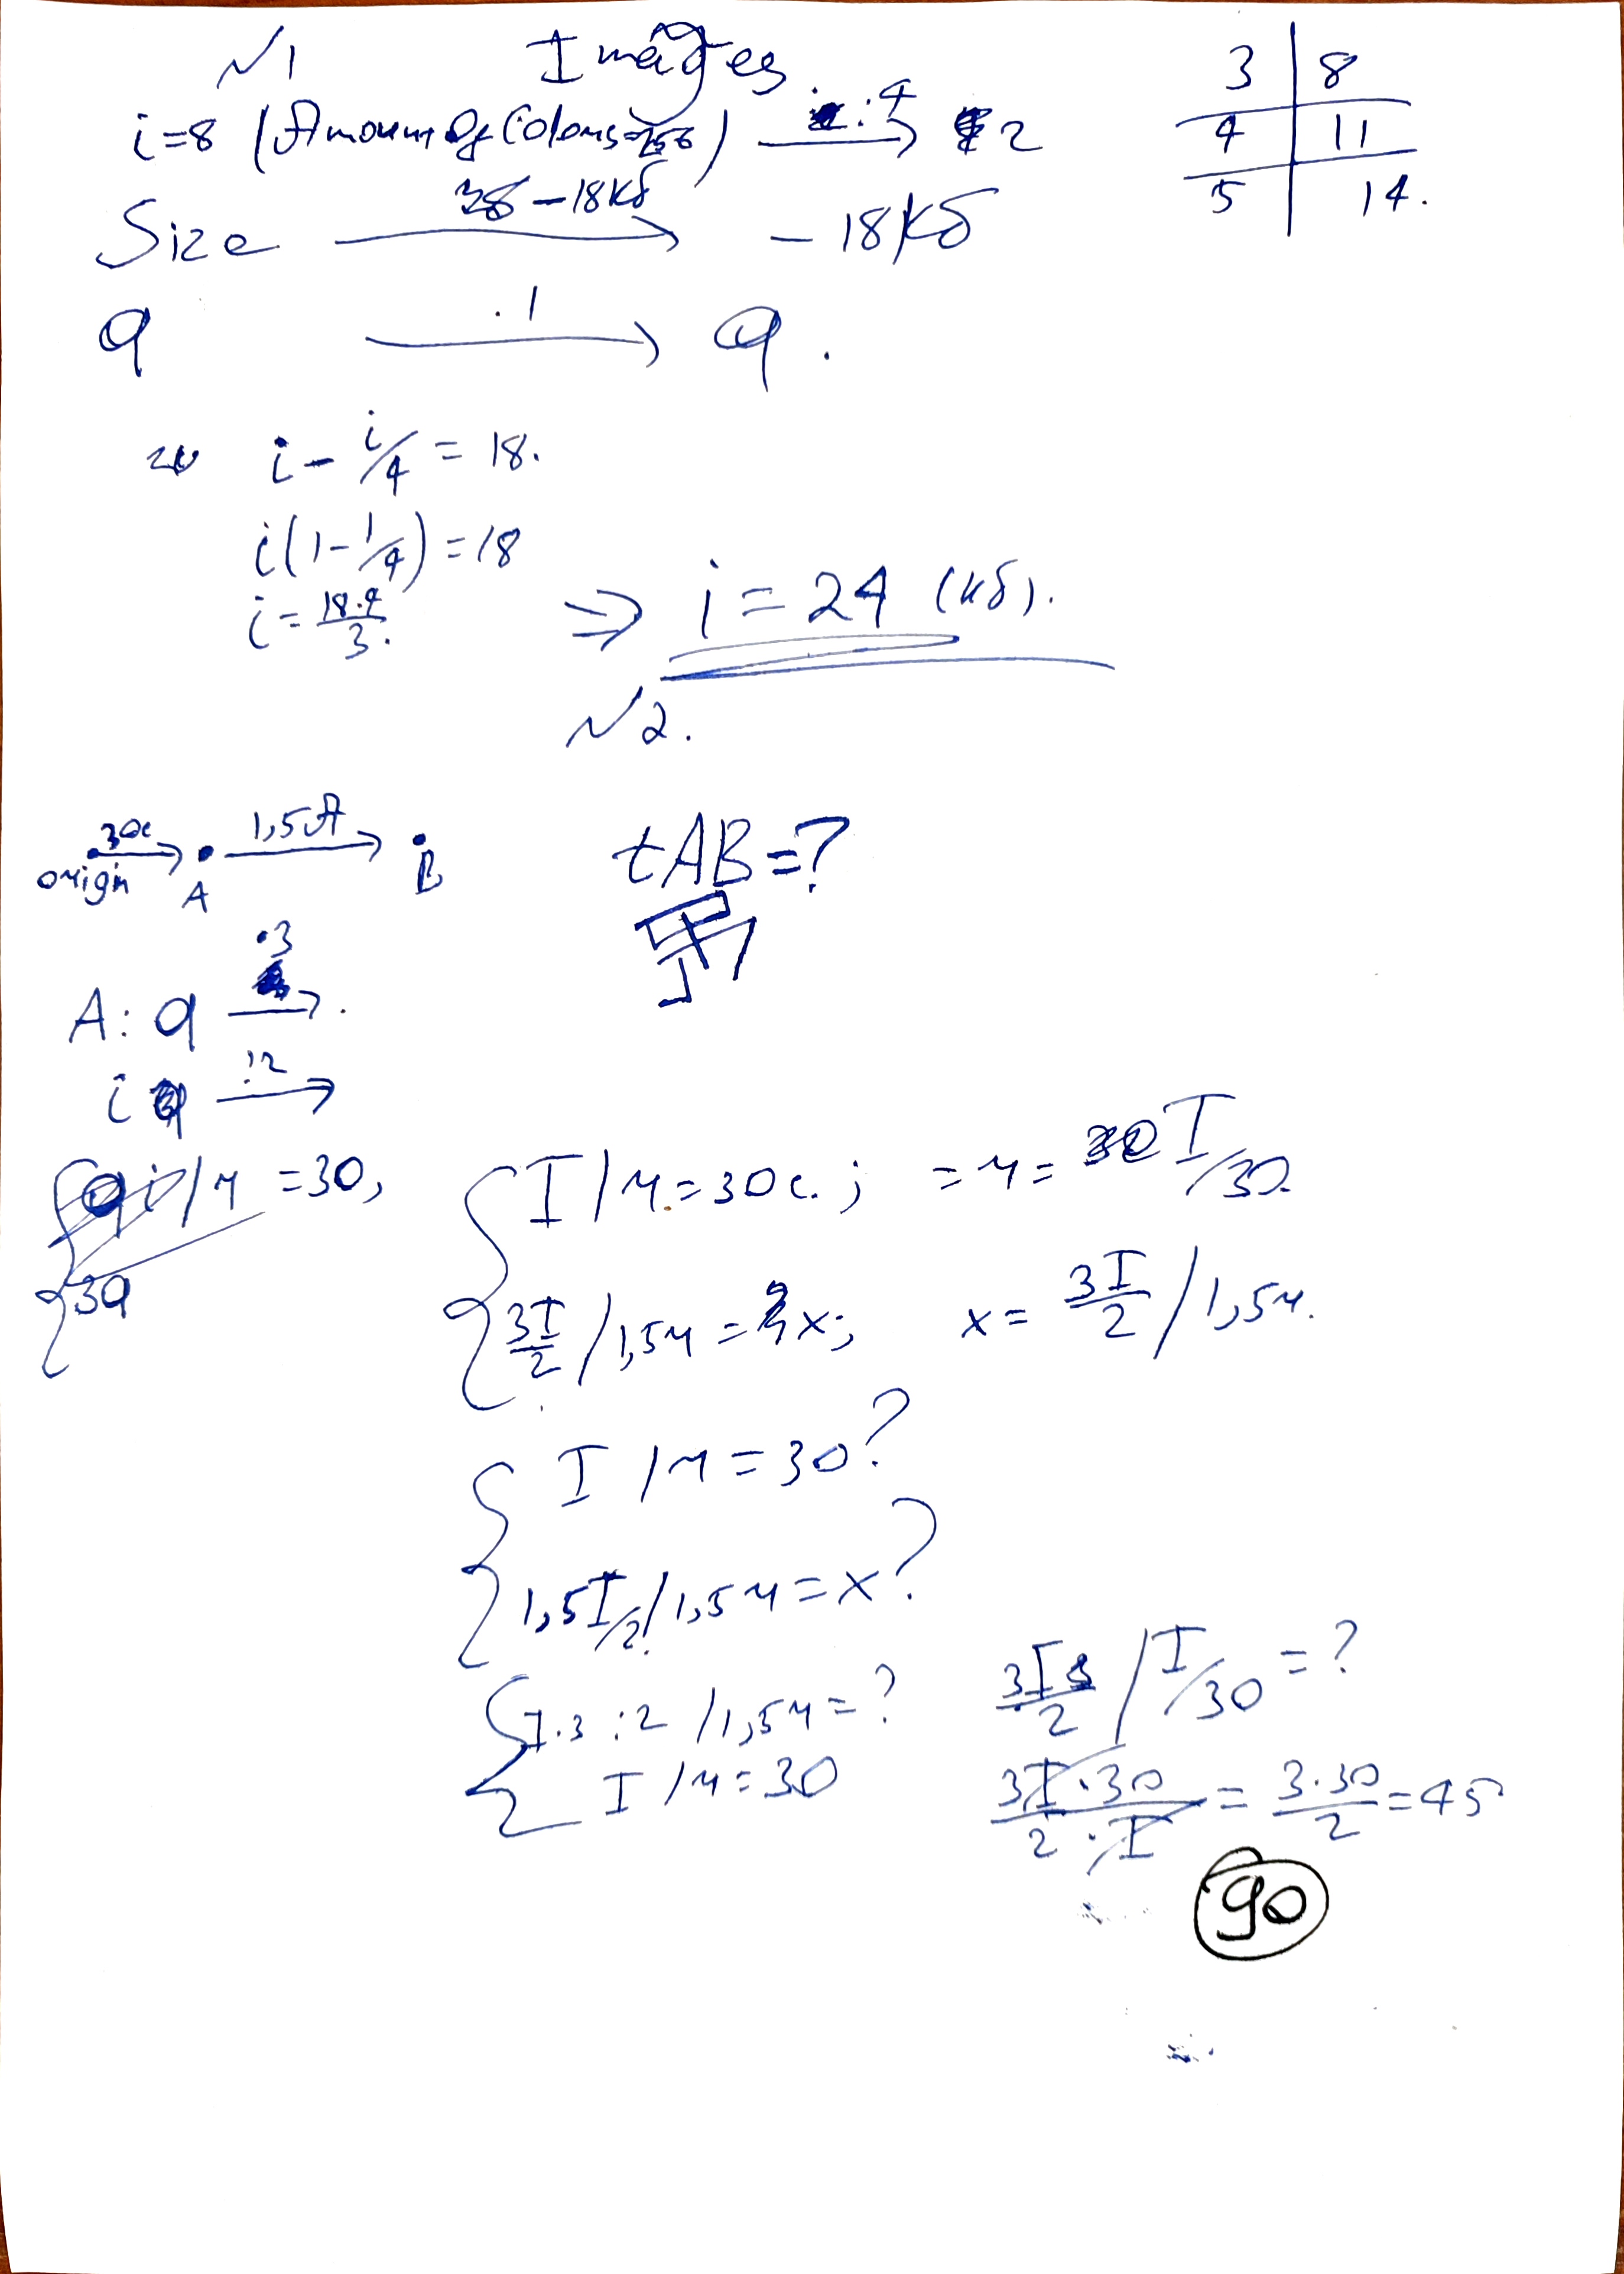 N1 Images
3 | 8
4 | 11
5 | 14.
i=8 (Amount Of Colors=256) :4 → 2
Size 18Кб → -18Кб
q ·1 → q.
i - i/4 = 18.
i(1-1/4)=18
i = 18·4/3. ⇒ i = 24 (Кб).
N2.
origin 30c → A 1,5A → B
tAB=?
A: q ·3 →.
i :2 →
qi/ч =30,
{ I/ч=30c.; =ч= I/30.
3q
{ 3I/2 /1,5ч = x; x= 3I/2 /1,5ч.
{ I/ч=30?
{ 1,5I/2/1,5ч=x?
{ I·3:2/1,5ч=?
{ I/ч=30
3I/2 / I/30 =?
3I·30/2·I = 3·30/2 =45
90